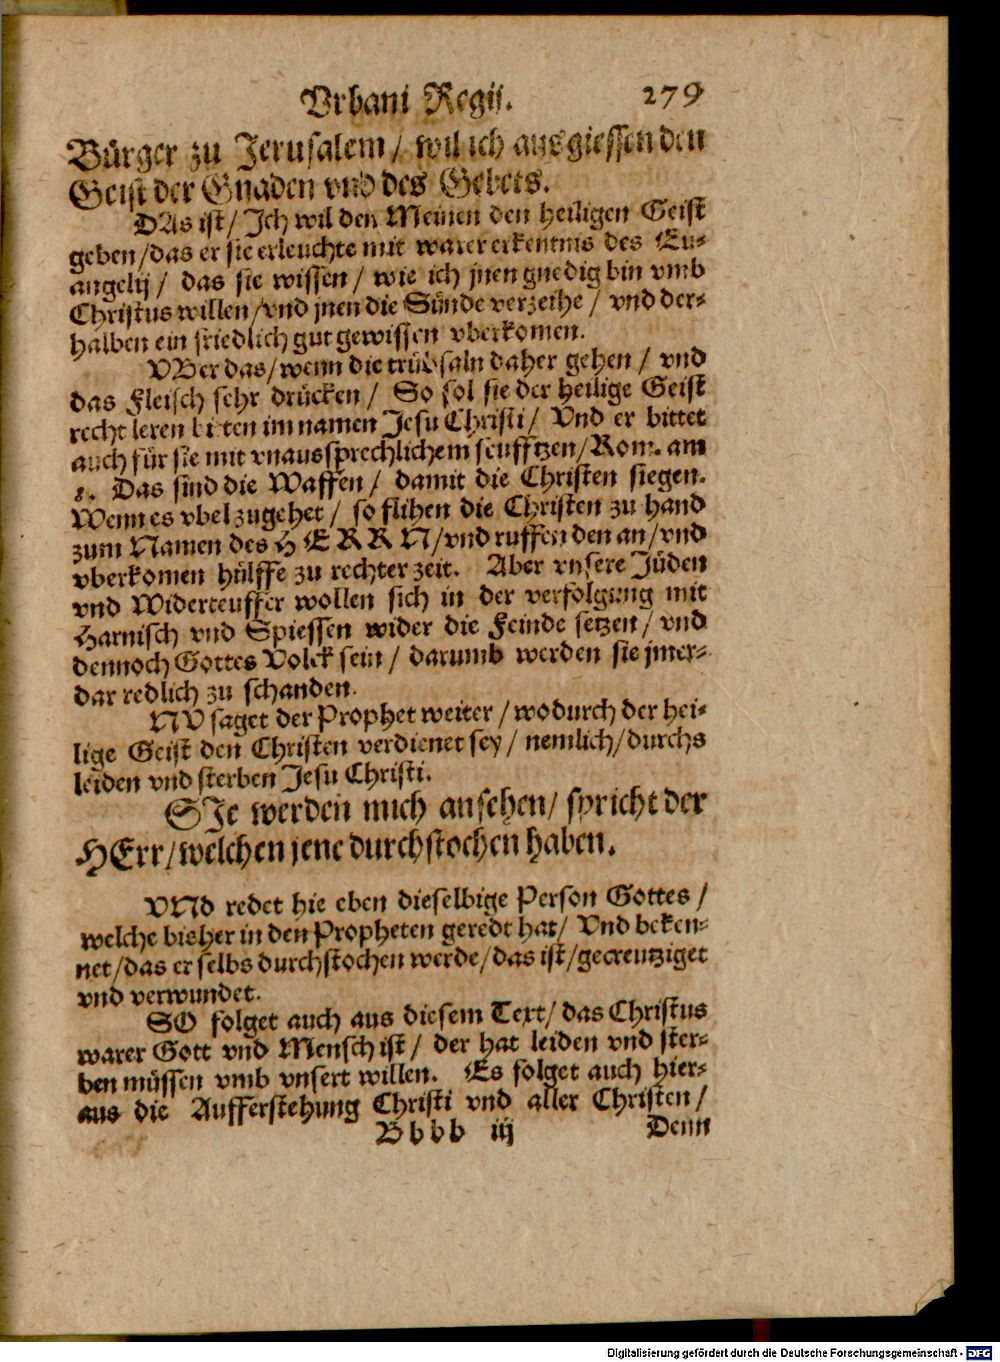 Vrbani Regij. 279
Bürger zu Jerusalem / wil ich ausgiessen den
Geist der Gnaden vnd des Gebets.
DAs ist / Jch wil den Meinen den heiligen Geist
geben / das er sie erleuchte mit warer erkentnis des Eu-
angelij / das sie wissen / wie ich jnen gnedig bin vmb
Christus willen / vnd jnen die Sünde verzeihe / vnd der-
halben ein friedlich gut gewissen vberkomen.
VBer das / wenn die trübsaln daher gehen / vnd
das Fleisch sehr drücken / So sol sie der heilige Geist
recht leren bitten im namen Jesu Christi / Vnd er bittet
auch für sie mit vnaussprechlichem seufftzen / Rom. am
8. Das sind die Waffen / damit die Christen siegen.
Wenn es vbel zugehet / so flihen die Christen zu hand
zum Namen des HERRN / vnd ruffen den an / vnd
vberkomen hülffe zu rechter zeit. Aber vnsere Jüden
vnd Widerteuffer wollen sich in der verfolgung mit
Harnisch vnd Spiessen wider die Feinde setzen / vnd
dennoch Gottes Volck sein / darumb werden sie jmer-
dar redlich zu schanden.
NV saget der Prophet weiter / wodurch der hei-
lige Geist den Christen verdienet sey / nemlich / durchs
leiden vnd sterben Jesu Christi.
SJe werden mich ansehen / spricht der
HErr / welchen jene durchstochen haben.
VNd redet hie eben dieselbige Person Gottes /
welche bisher in den Propheten geredt hat / Vnd beken-
net / das er selbs durchstochen werde / das ist / gecreutziget
vnd verwundet.
SO folget auch aus diesem Text / das Christus
warer Gott vnd Mensch ist / der hat leiden vnd ster-
ben müssen vmb vnsert willen. Es folget auch hier-
aus die Aufferstehung Christi vnd aller Christen /
Bbbb iij Denn
Digitalisierung gefördert durch die Deutsche Forschungsgemeinschaft - DFG